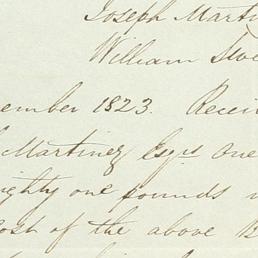 Joseph Marti
William Swe
ember 1823. Recei
Martinez Esqr. One
ighty one pounds
ost of the above B